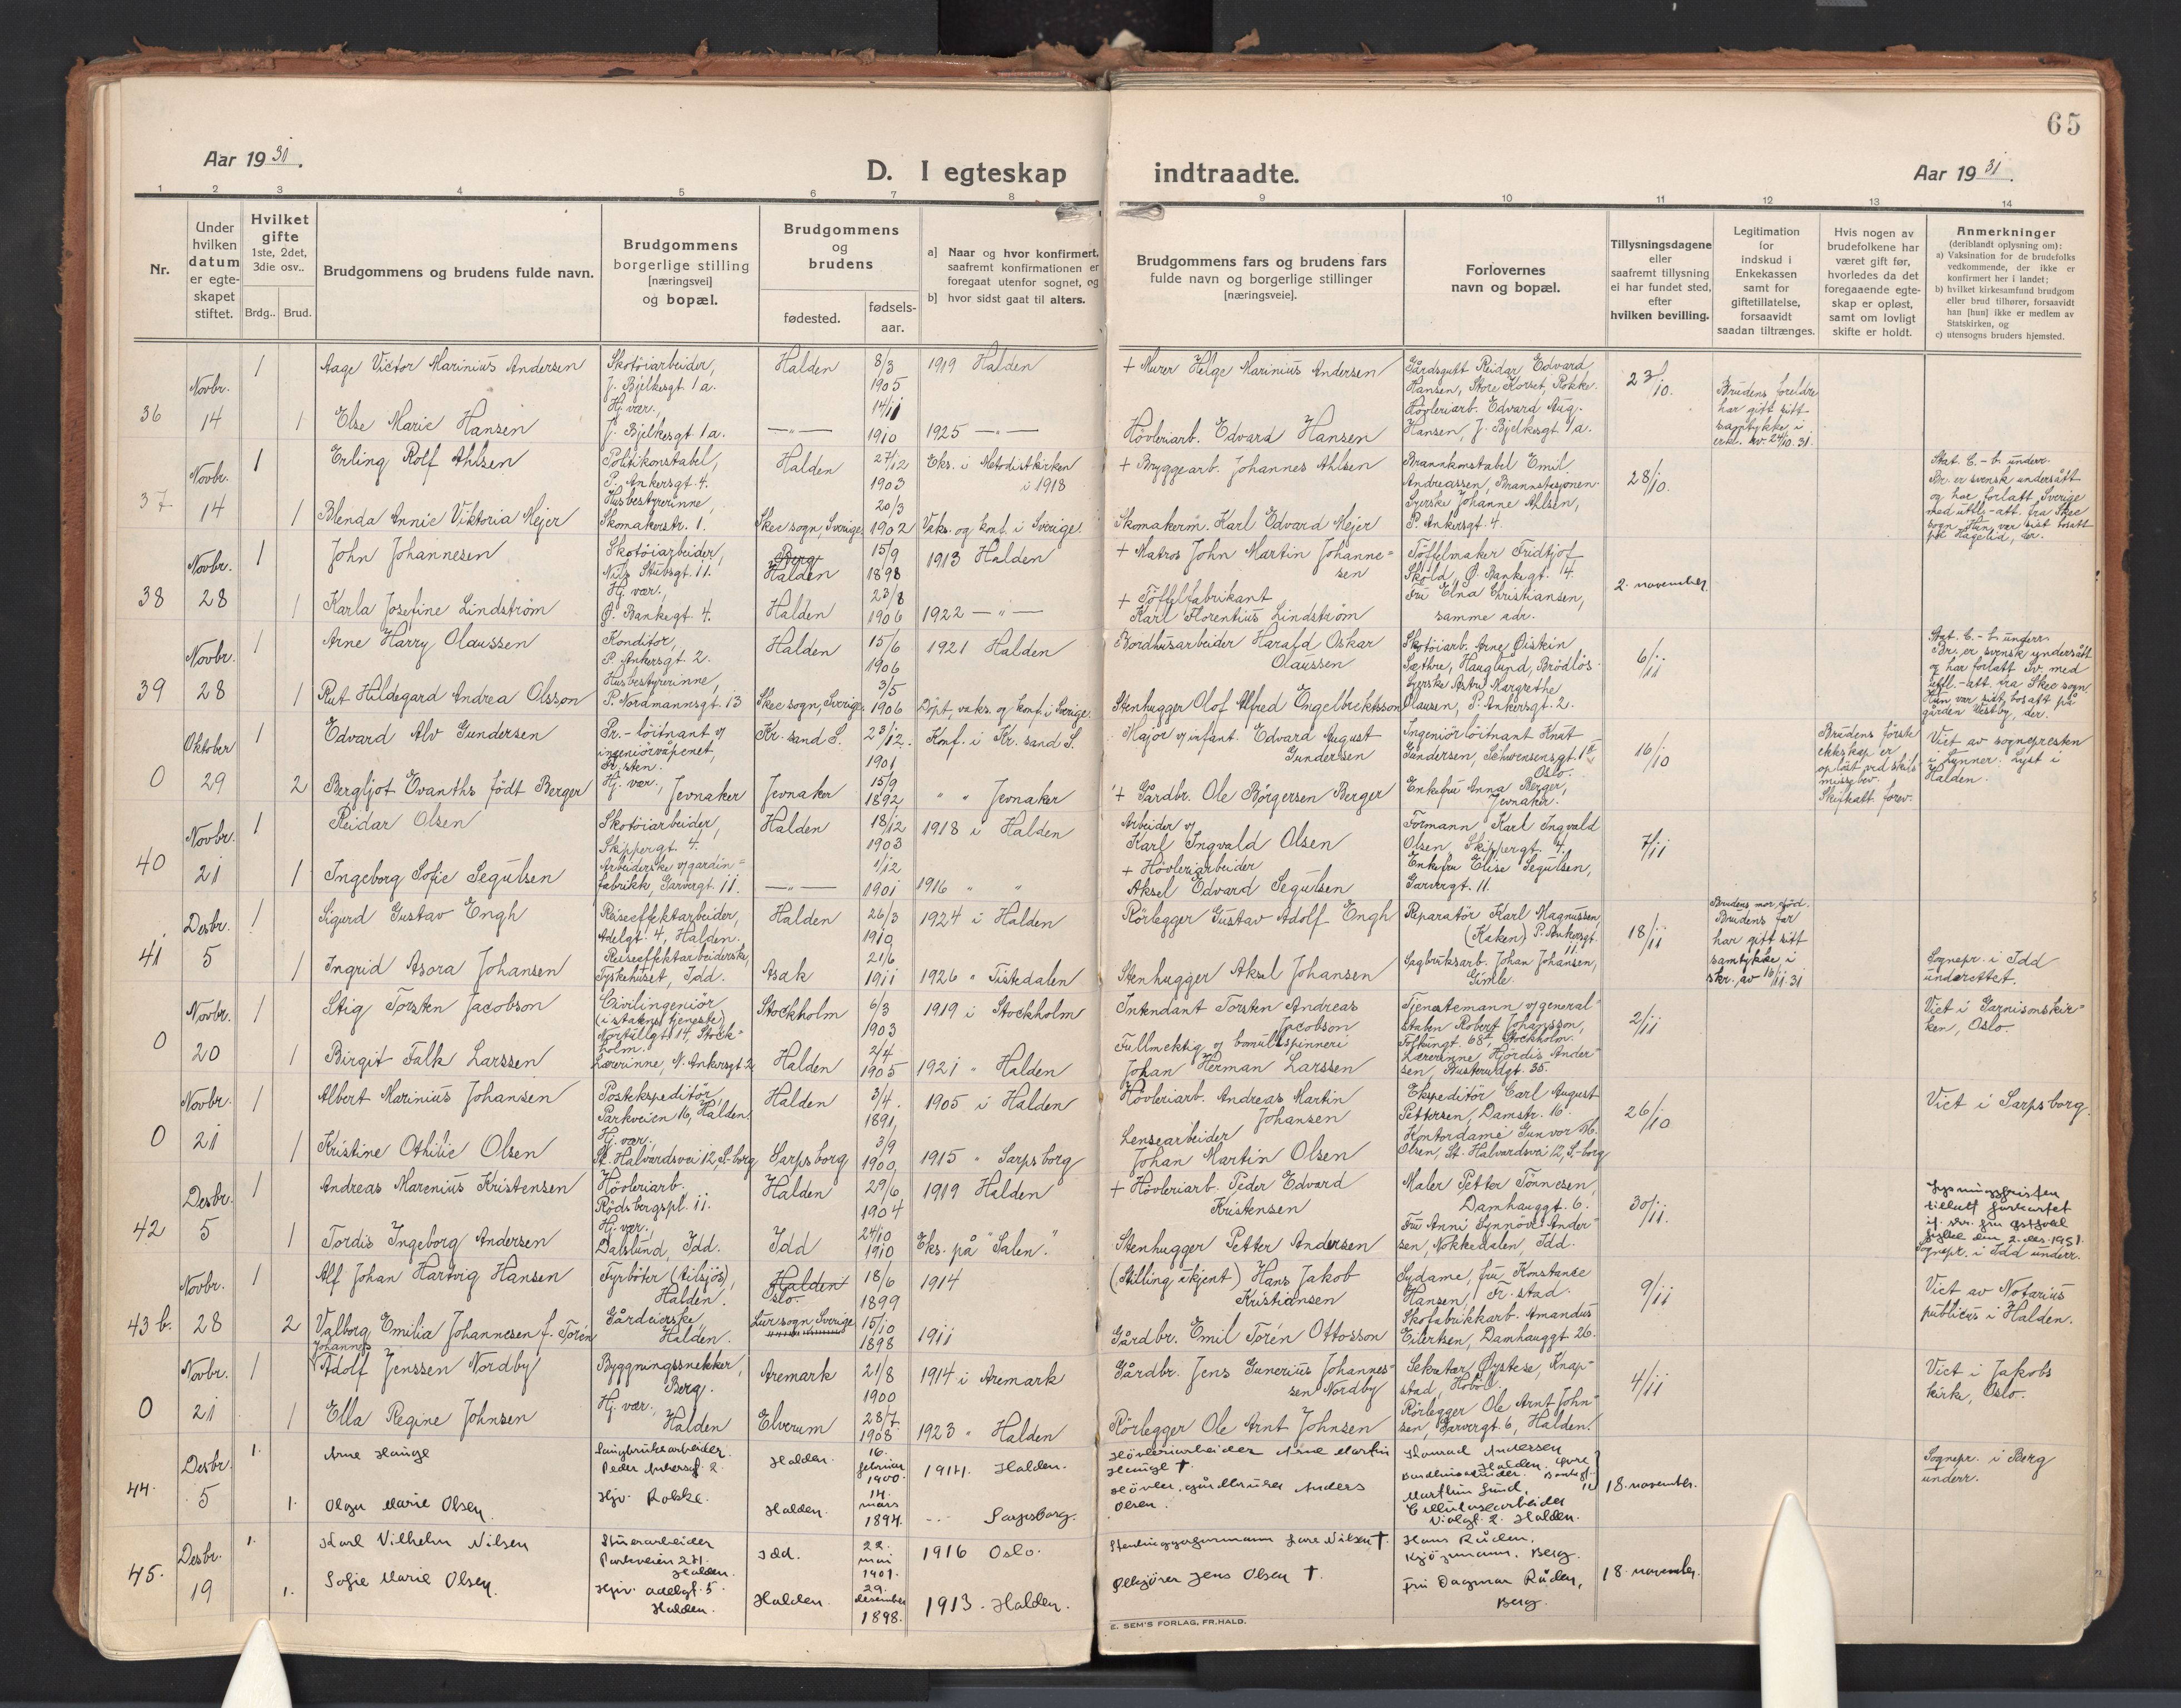 65
Aar 1931.
D. I egteskap indtraadte.
Aar 1931.
1 2 3 4 5 6 7 8 9 10 11 12 13 14
Nr.
Under hvilken datum er egteskapet stiftet.
Hvilket gifte 1ste, 2det, 3die osv..
Brdg.. Brud.
Brudgommens og brudens fulde navn.
Brudgommens borgerlige stilling [næringsvei] og bopæl.
Brudgommens og brudens
fødested.
fødsels-aar.
a) Naar og hvor konfirmert, saafremt konfirmationen er foregaat utenfor sognet, og
b) hvor sidst gaat til alters.
Brudgommens fars og brudens fars fulde navn og borgerlige stillinger [næringsveie].
Forlovernes navn og bopæl.
Tillysningsdagene eller saafremt tillysning ei har fundet sted, efter hvilken bevilling.
Legitimation for indskud i Enkekassen samt for giftetillatelse, forsaavidt saadan tiltrænges.
Hvis nogen av brudefolkene har været gift før, hvorledes da det foregaaende egteskap er opløst, samt om lovligt skifte er holdt.
Anmerkninger (deriblandt oplysning om):
a) Vaksination for de brudefolks vedkommende, der ikke er konfirmert her i landet;
b) hvilket kirkesamfund brudgom eller brud tilhører, forsaavidt han [hun] ikke er medlem av Statskirken, og
c) utensogns bruders hjemsted.
36 Novbr. 14 1 Aage Victor Marinius Andersen Skotöiarbeider, J. Bjelkesgt. 1a. Halden 8/3 1905 1919 Halden + Murer Helge Marinius Andersen Gårdsgutt Reidar Edvard Hansen, Store Korset, Rokke. 23/10.
1 Else Marie Hansen Hj. vær., J. Bjelkesgt 1a. —"— 14/11 1910 1925 —"— Hövleriarb. Edvard Hansen Hövleriarb. Edvard Aug. Hansen, J. Bjelkesgt 1a. Brudens foreldre har gitt sitt samtykke i erkl. av 24/10. 31.
37 Novbr. 14 1 Erling Rolf Ahlsen Politikonstabel, P. Ankersgt. 4. Halden 27/12 1903 Eks. i Metodistkirken i 1918 + Bryggearb. Johannes Ahlsen Brannkonstabel Emil Andreassen, Brannstasjonen. 28/10.
1 Blenda Annie Viktoria Mejer Husbestyrerinne, Skomakerstr. 1. Skee sogn, Sverige 20/3 1902 Vaks. og konf. i Sverige. Skomakerm. Karl Edvard Mejer Syerske Johanne Ahlsen, P. Ankersgt. 4. Stat. C.-b. underr. Br. er svensk undersått og har forlatt Sverige med utfl.-att. fra Skee sogn. Hun var sist bosatt på Hagelid, der.
38 Novbr. 28 1 John Johannesen Skotöiarbeider, Nils Stubsgt. 11. Berg Halden 15/9 1898 1913 Halden + Matros John Martin Johannesen Töffelmaker Fridtjof Sköld, Ø. Bankegt. 4. 2. november.
1 Karla Josefine Lindström Hj. vær., Ø. Bankegt. 4. Halden 23/8 1906 1922 —"— + Töffelfabrikant Karl Florentius Lindström Fru Elna Christiansen, samme adr.
39 Novbr. 28 1 Arne Harry Olaussen Konditor, P. Ankersgt. 2. Halden 15/6 1906 1921 Halden Bordhusarbeider Harald Oskar Olaussen Skotöiarb. Arne Öistein Sæthre, Hauglund, Brödlös. 6/11
1 Rut Hildegard Andrea Olsson Husbestyrerinne, P. Nordmannsgt. 13 Skee sogn, Sverige. 3/5 1906 Döpt, vaks. og konf. i Sverige. Stenhugger Olof Alfred Engelbrektsson Syerske Astrid Margrethe Olausen, P. Ankersgt. 2. Stat. C.-b. underr. Br. er svensk undersått og har forlatt Sv. med utfl.-att. fra Skee sogn. Hun var sist bosatt på gården Vestby, der.
0 Oktober 29 1 Edvard Alv Gundersen Pr.-löitnant v/ ingeniörvåpenet, Pr.sten. Kr. sand S. 23/12. 1901 Konf. i Kr. sand S. Major v/ infant. Edvard August Gundersen Ingeniörlöitnant Knut Gundersen, Schwensensgt. 1 Oslo. 16/10
2 Bergljot Evanths födt Berger Hj. vær., Jevnaker Jevnaker 15/9 1892 " " Jevnaker + Gårdbr. Ole Börgersen Berger Enkefru Anna Berger, Jevnaker. Brudens förste ekteskap er oplöst ved skilsmissebev. Skifteatt. forev. Viet av sognepresten i Lunner. Lyst i Halden.
40 Novbr. 21 1 Reidar Olsen Skotöiarbeider, Skippergt. 4. Halden 18/12 1903 1918 i Halden Arbeider v/ Karl Ingvald Olsen Formann Karl Ingvald Olsen, Skippergt. 4. 7/11
1 Ingeborg Sofie Segulsen Arbeiderske v/ gardinfabrikk, Garvergt. 11. —"— 1/12 1901 1916 " " + Hövleriarbeider Aksel Edvard Segulsen Enkefru Elise Segulsen, Garvergt. 11.
41 Desbr. 5 1 Sigurd Gustav Engh Reiseeffektarbeider, Adelgt. 4, Halden. Halden 26/3 1910 1924 i Halden Rörlegger Gustav Adolf Engh Reparatör Karl Magnussen, (Kaken) P. Ankersgt. 11. 18/11
1 Ingrid Asora Johansen Reiseeffektarbeiderske, Tyskehuset, Idd. Asak 21/6 1911 1926 " Tistedalen Stenhugger Aksel Johansen Sagbruksarb. Johan Johansen, Gimle. Brudens mor död. Brudens far har gitt sitt samtykke i skr. av 16/11 31 Sognepr. i Idd underettet.
0 Novbr. 20 1 Stig Torsten Jacobson Civilingeniör (i statens tjeneste) Norrtullgt. 14, Stockholm. Stockholm 6/3 1903 1919 i Stockholm Intendant Torsten Andreas Jacobson Tjenestemann v/ generalstaben Robert Johansson, Folkungt. 68, Stockholm. 2/11
1 Birgit Falk Larssen Lærerinne, N. Ankersgt. 2 Halden 2/4 1905 1921 " Halden Fullmektig v/ bomullsspinneri Johan Herman Larssen Lærerinne Hjördis Andersen, Busterudgt. 35. Viet i Garnisonskirken, Oslo.
0 Novbr. 21 1 Albert Marinius Johansen Postekspeditör, Parkveien 16, Halden. Halden 3/4. 1891, 1905 i Halden Hövleriarb. Andreas Martin Johansen Ekspeditör Carl August Pettersen, Damstr. 16. 26/10
1 Kristine Othilie Olsen Hj. vær., St. Halvardsvei 12, S-borg Sarpsborg 3/9 1900, 1915 " Sarpsborg Lensearbeider Johan Martin Olsen Kontordame Gunvor M. Olsen, St. Halvardsvei 12, S-borg Viet i Sarpsborg.
42 Desbr. 5 1 Andreas Marenius Kristensen Hövleriarb. Rödsbergspl. 11. Halden 29/6 1904 1919 Halden + Hövleriarb. Peder Edvard Kristensen Maler Petter Tönnesen, Damhauggt. 6. 30/11.
1 Tordis Ingeborg Andersen Hj. vær., Dalslund, Idd. Idd 24/10 1910 Eks. på "Salen." Stenhugger Petter Andersen Fru Anni Synnöve Andersen, Nokkedalen, Idd. Lysningsfristen tillatt forkortet if. skr. fra Østfold fylke den 2. des. 1931. Sognepr. i Idd underr.
43 b. Novbr. 28 1 Alf Johan Hartvig Hansen Fyrböter (tilsjös), Halden. Halden Oslo. 18/6 1899 1914 (Stilling ukjent) Hans Jakob Kristiansen Sydame, fru Konstanse Hansen, Fr.stad. 9/11
2 Valborg Emilia Johannesen f. Torén Gårdeierske, Halden. Lur sogn, Sverige 15/10 1898 1911 Gårdbr. Emil Torén Ottosson Skofabrikkarb. Amandus Eilertsen, Damhauggt 26. Viet av Notarius publicus i Halden.
0 Novbr. 21 1 Johannes Adolf Jenssen Nordby Byggningssnekker, Berg. Aremark 21/8 1900 1914 i Aremark Gårdbr. Jens Gunerius Johannessen Nordby Sekretær Øystese, Knapstad, Hobøl. 4/11
1 Ella Regine Johnsen Hj. vær., Halden Elverum 28/7 1908 1923 " Halden Rörlegger Ole Arnt Johnsen Rörlegger Ole Arnt Johnsen, Garvergt. 6, Halden. Viet i Jakobs kirke, Oslo.
44. Desbr. 5 1. Arne Hauge Saugbruksarbeider. Peder Ankersgt. 2. Halden. 16. februar 1900. 1914. Halden. Hövleriarbeider Arne Martin Hauge †. Konrad Andersen Halden. 18. november.
1. Olga Marie Olsen Hjv. Rokke. Halden. 14. mars 1894. -- Sarpsborg. Hövler, gårdbruker Anders Olsen. Marthin Lund, Cellulosearbeider Violgt. 2. Halden. Sognepr. i Berg underr.
45. Desbr. 19 1. Karl Vilhelm Nilsen Stuerarbeider Parkveien 24. Halden. Idd. 22. mai 1901. 1916 Oslo. Stenhuggerformann Lars Nilsen †. Hans Råden, Kjöpmann. Berg. 18. november.
1. Sofie Marie Olsen. Hjv. Adelgt. 5. Halden. Halden. 29. desember 1898. 1913. Halden. Jens Olsen †. Fru Dagmar Råden, Berg.
E. SEM'S FORLAG, FR.HALD.